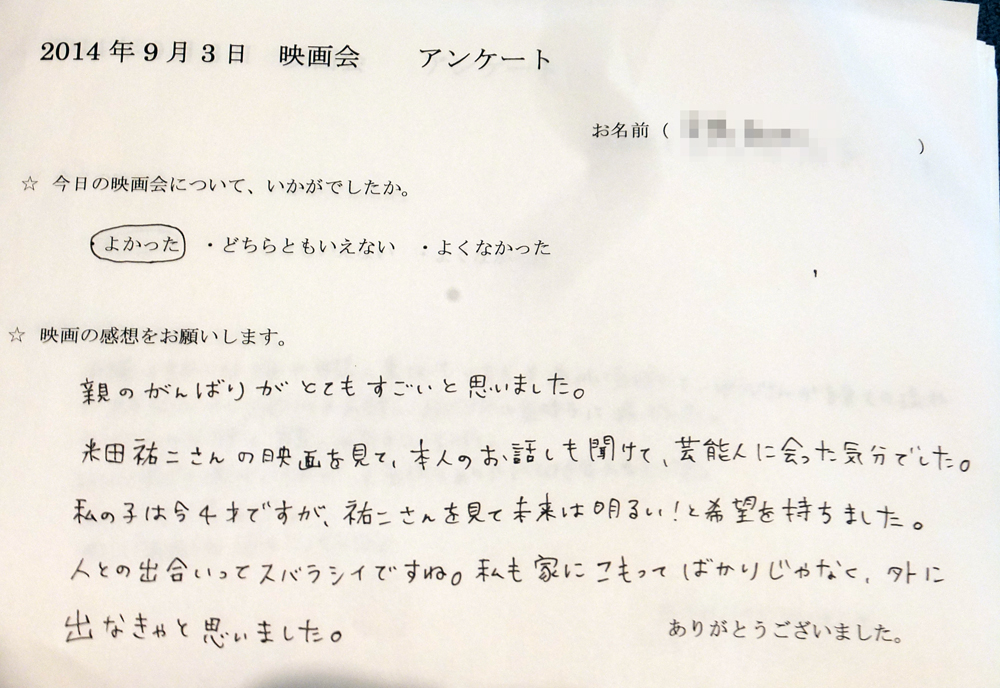 2014年9月3日　映画会　　アンケート
お名前（　　　　　）
☆ 今日の映画会について、いかがでしたか。
・よかった　・どちらともいえない　・よくなかった
☆ 映画の感想をお願いします。
親のがんばりがとてもすごいと思いました。
米田祐二さんの映画を見て、本人のお話しも聞けて、芸能人に会った気分でした。
私の子は今4才ですが、祐二さんを見て未来は明るい!と希望を持ちました。
人との出合いってスバラシイですね。私も家にこもってばかりじゃなく、外に
出なきゃと思いました。
ありがとうございました。